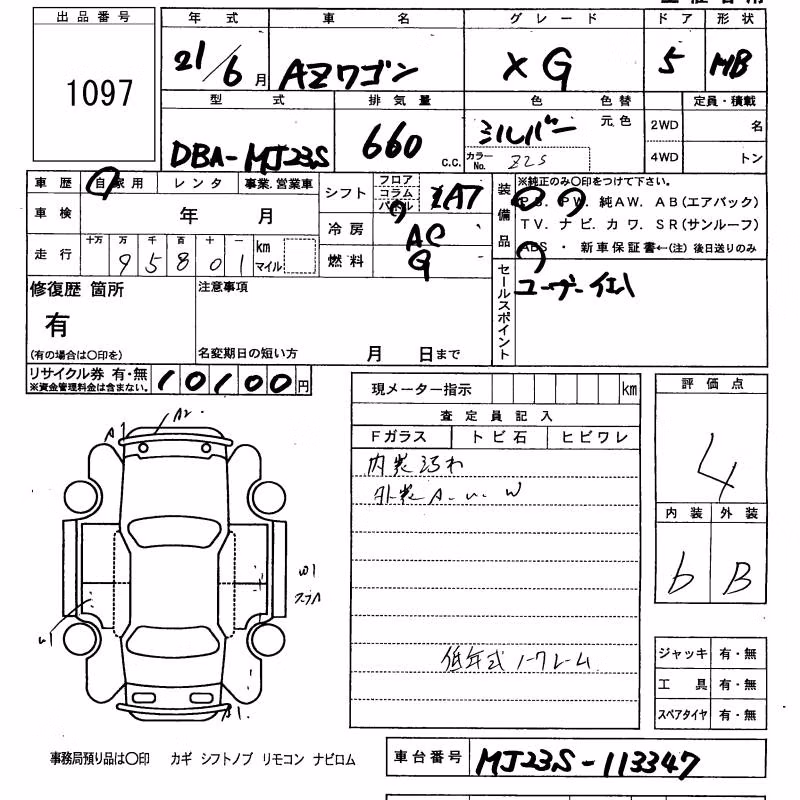 出品番号
1097
年式 車名 グレード ドア 形状
21/6月 AZワゴン XG 5 HB
型式 排気量 色 色替 定員・積載
DBA-MJ23S 660 C.C. シルバー 元色 2WD 名
カラーNo. Z2S 4WD トン
車歴 自家用 レンタ 事業.営業車
シフト フロア コラム パネル AT
車検 年 月
冷房 AC
走行 十万 万 千 百 十 一 km マイル
9 5 8 0 1
燃料 G
装備品
※純正のみ○印をつけて下さい。
P.S. P.W. 純AW. AB(エアバック)
TV. ナビ. カワ. SR(サンルーフ)
ABS ・ 新車保証書←(注)後日送りのみ
セールスポイント
ユーザー仕入
修復歴 箇所
有
(有の場合は○印を)
注意事項
名変期日の短い方 月 日まで
リサイクル券 有・無
※資金管理料金は含まない。
10100円
現メーター指示 km
査定員記入
Fガラス トビ石 ヒビワレ
内装汚れ
外装A.U.W
低年式ノークレーム
評価点
4
内装 外装
b B
A1
A2
W1
U1
B1
ジャッキ 有・無
工具 有・無
スペアタイヤ 有・無
事務局預り品は○印 カギ シフトノブ リモコン ナビロム
車台番号 MJ23S-113347